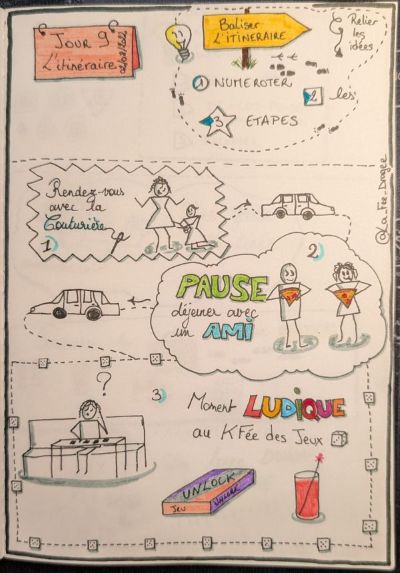 Jour 9
L'itinéraire
Baliser
L'itinéraire
Relier
les
idées
1 Numéroter
2 les
3 Etapes
@La_Fée_Dragée
Rendez-vous
avec la
Couturière
1
2
PAUSE
déjeuner avec
un AMI
?
3 Moment LUDIQUE
au KFée des Jeux
UNLOCK
Jeu